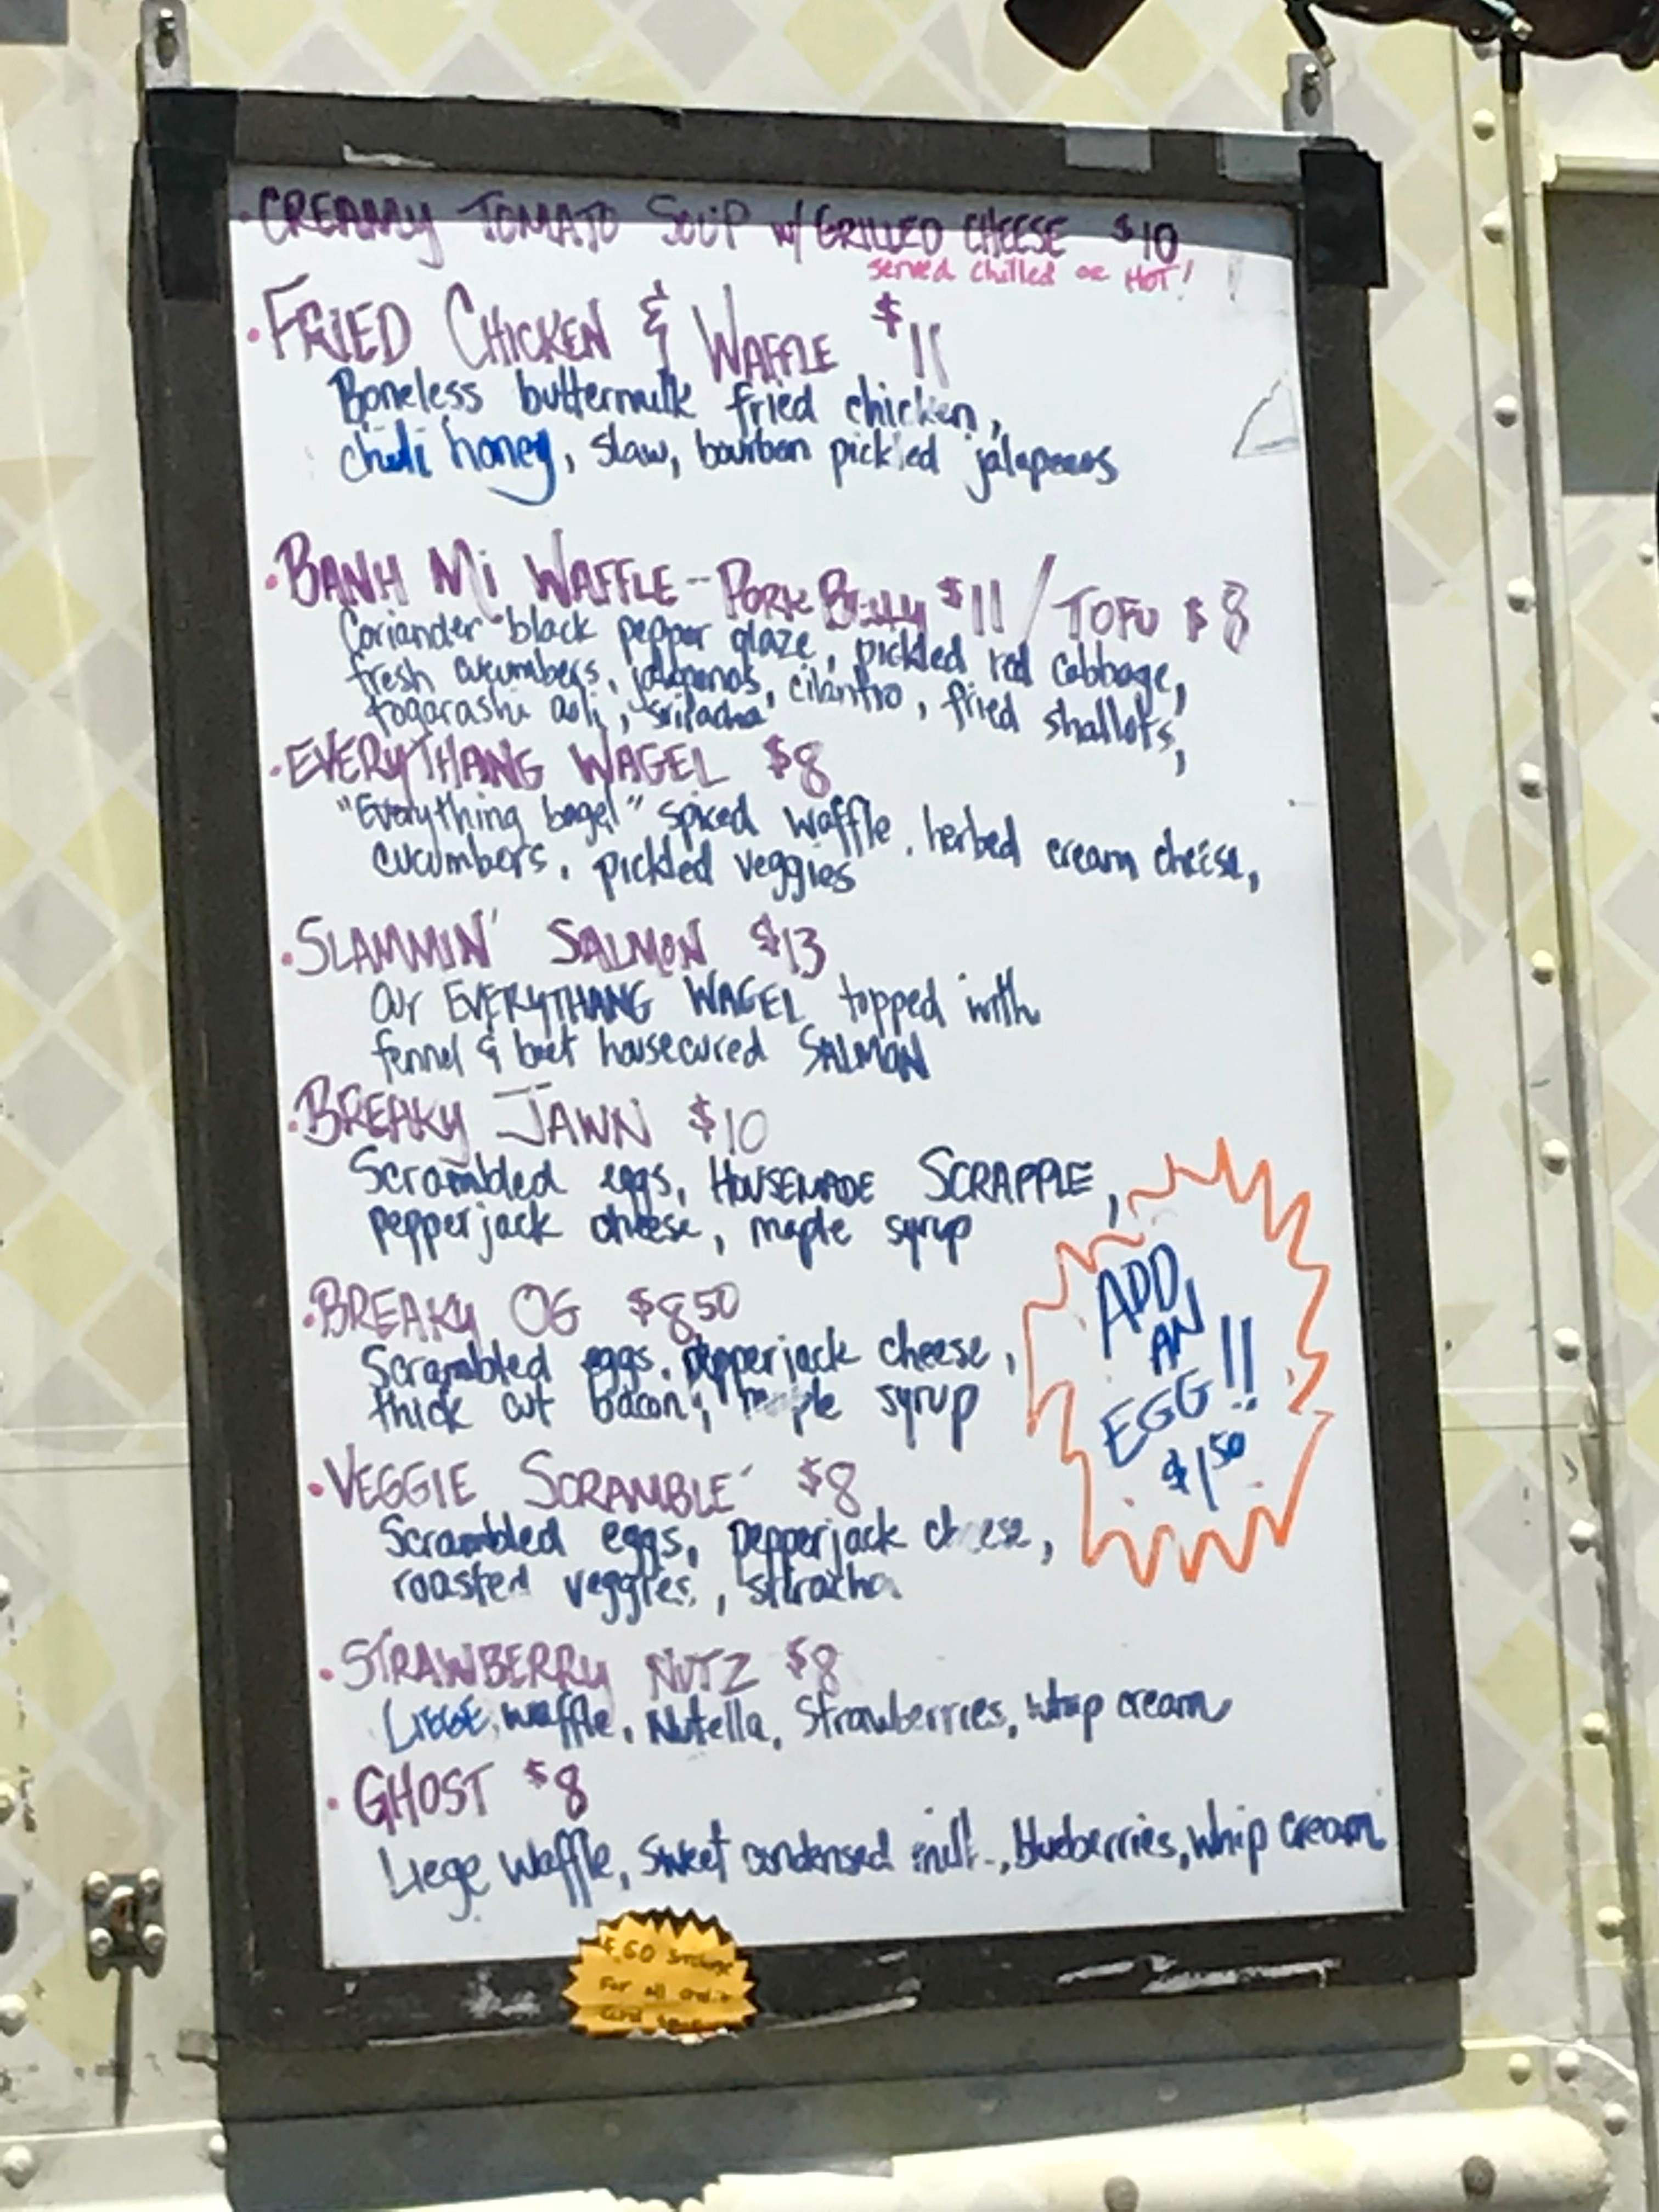 · CREAMY TOMATO SOUP W/ GRILLED CHEESE $10
served chilled or HOT!
· FRIED CHICKEN & WAFFLE $11
Boneless buttermilk fried chicken,
chili honey, slaw, bourbon pickled jalapenos
· BANH Mi WAFFLE - PORK BELLY $11 / TOFU $8
Coriander-black pepper glaze, pickled red cabbage,
fresh cucumbers, jalapenos, cilantro, fried shallots,
togarashi aoli, sriracha
· EVERYTHANG WAGEL $8
"Everything bagel" spiced waffle, herbed cream cheese,
cucumbers, pickled veggies
· SLAMMIN' SALMON $13
our EVERYTHANG WAGEL topped with
fennel & beet housecured SALMON
· BREAKY JAWN $10
Scrambled eggs, HOUSEMADE SCRAPPLE,
pepperjack cheese, maple syrup
· BREAKY OG $8.50
Scrambled eggs, pepperjack cheese,
thick cut bacon, maple syrup
ADD
AN
EGG!!
$1.50
· VEGGIE SCRAMBLE $8
Scrambled eggs, pepperjack cheese,
roasted veggies, sriracha
· STRAWBERRY NUTZ $8
LIEGE waffle, Nutella, Strawberries, whip cream
· GHOST $8
Liege waffle, sweet condensed milk, blueberries, whip cream
For all credit
card